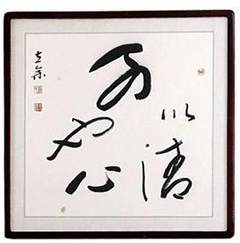 以清
可也心